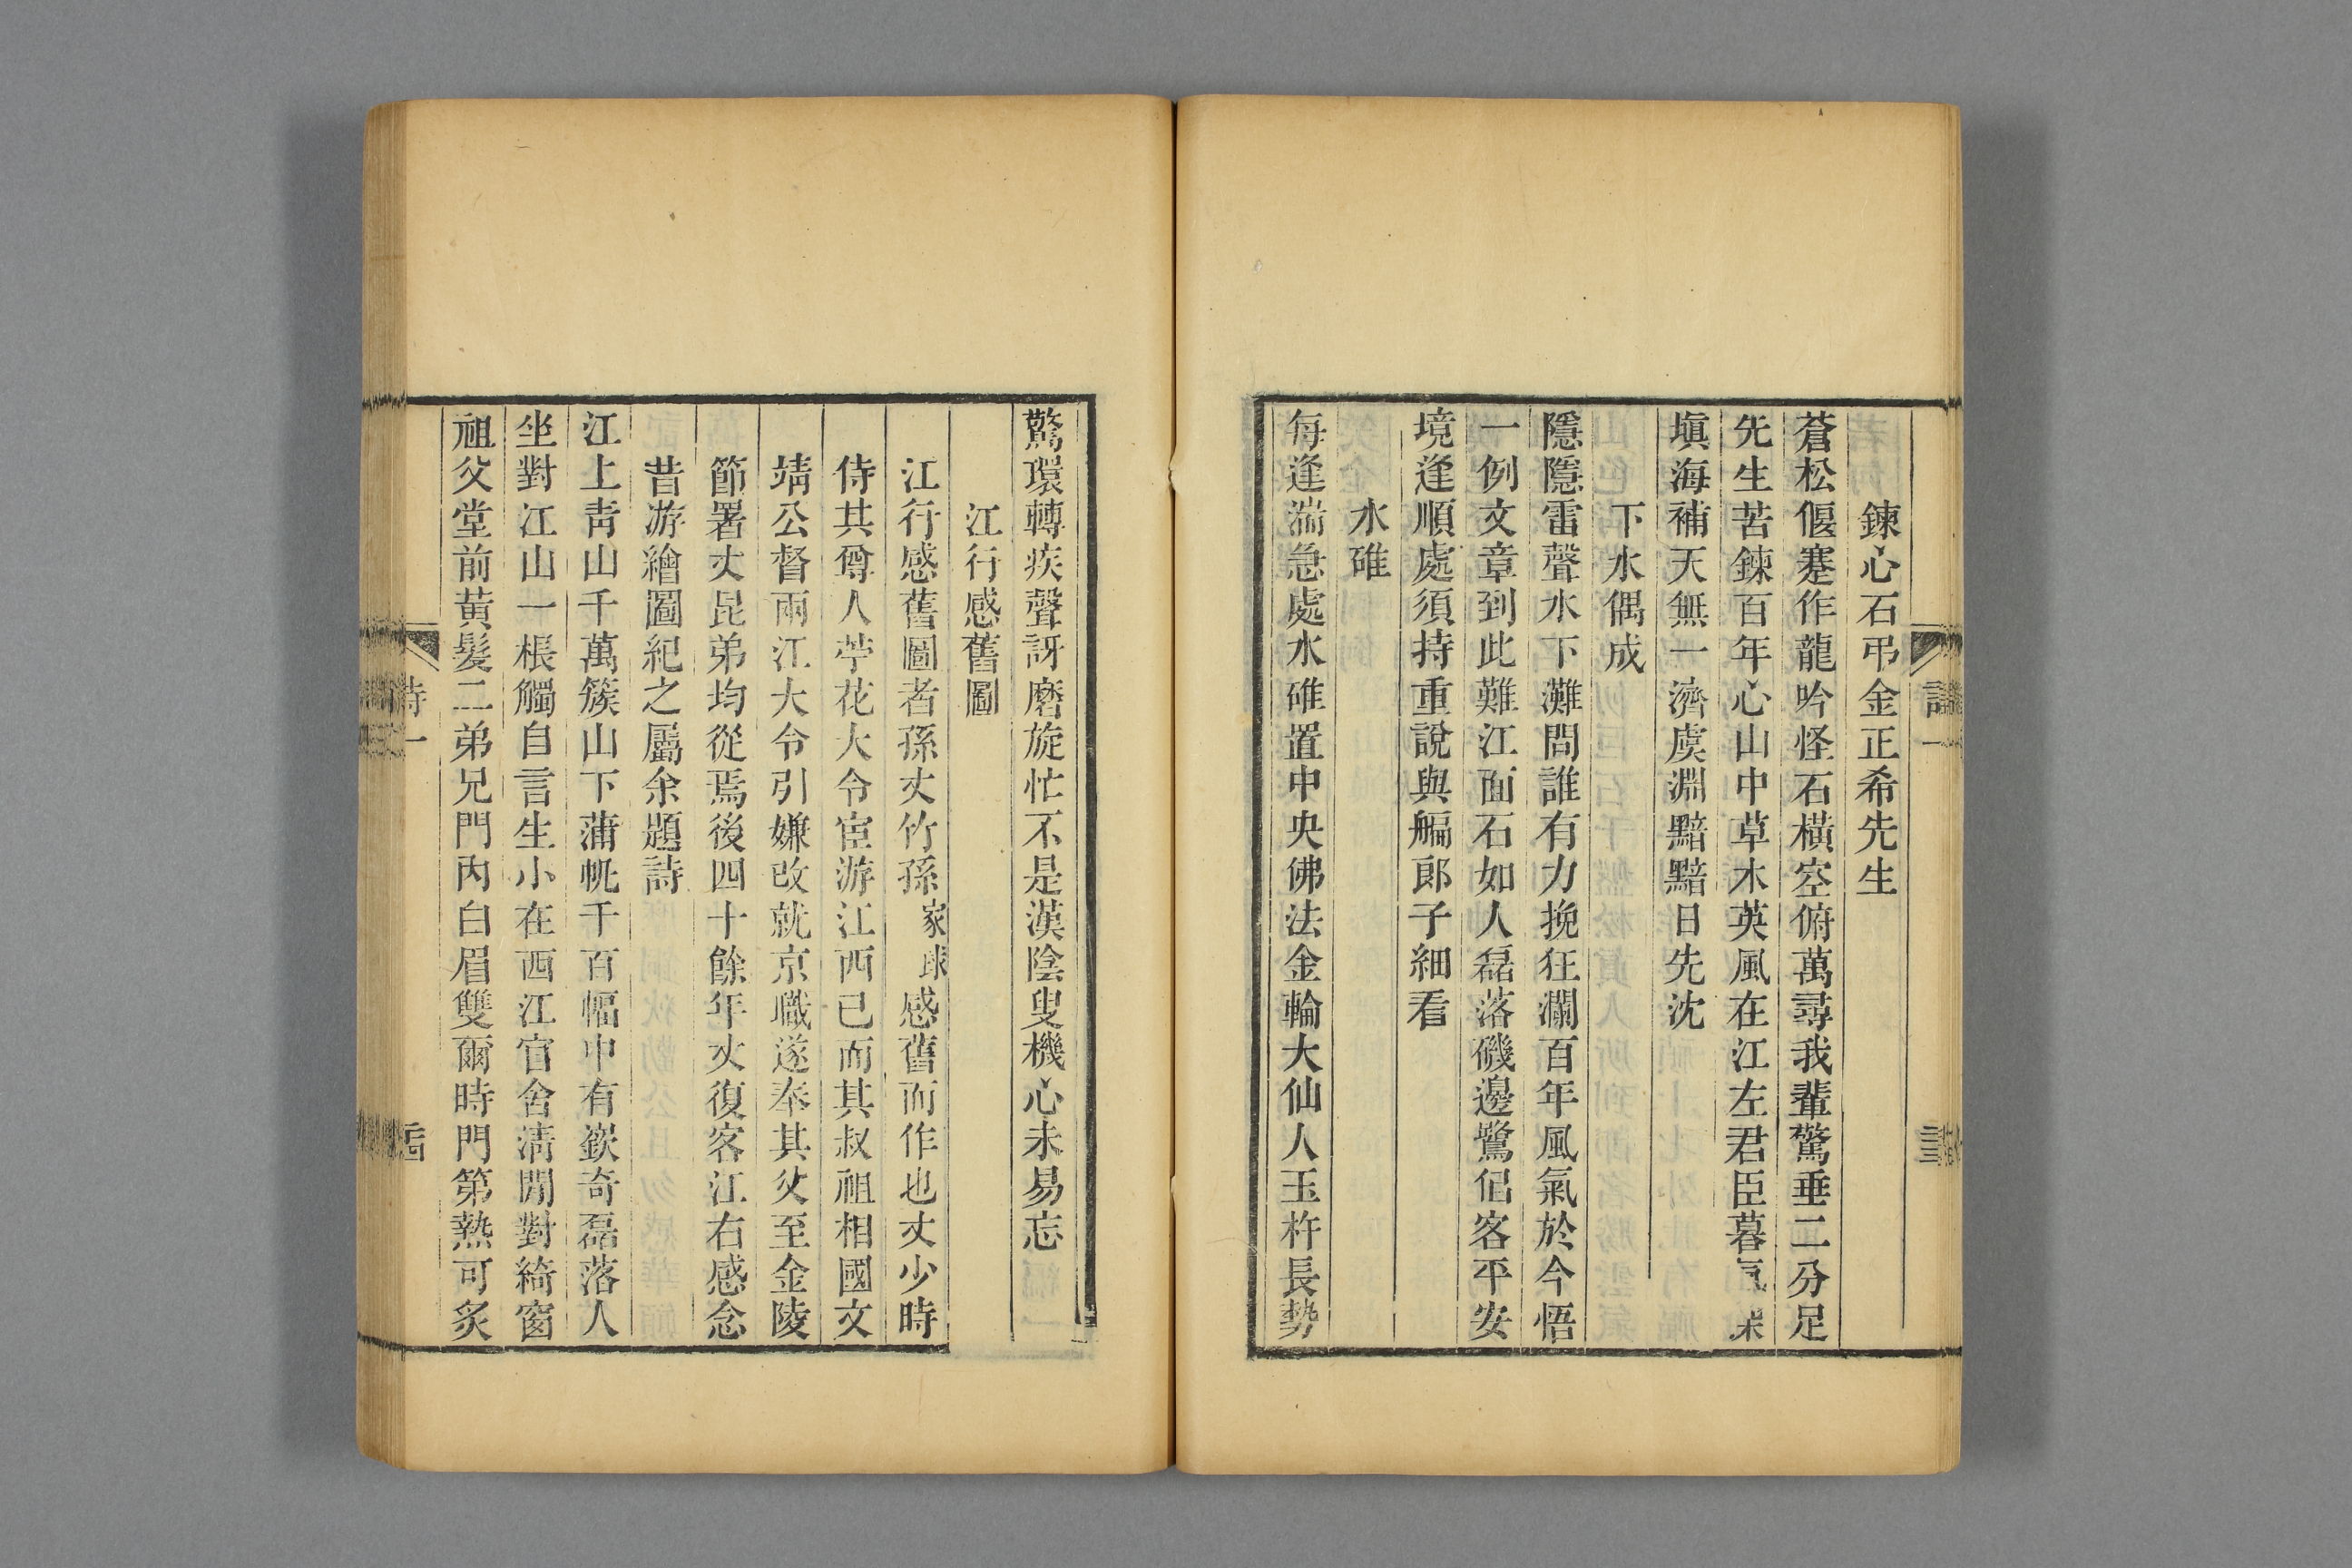 鍊心石弔金正希先生
蒼松偃蹇作龍吟怪石橫空俯萬尋我輩驚垂二分足
先生苦鍊百年心山中草木英風在江左君臣暮氣深
塡海補天無一濟虞淵黯黯日先沈
下水偶成
隱隱雷聲水下灘問誰有力挽狂瀾百年風氣於今悟
一例文章到此難江面石如人磊落磯邊鷺侶客平安
境逢順處須持重說與艑郎子細看
水碓
每逢湍急處水碓置中央佛法金輪大仙人玉杵長勢
驚環轉疾聲訝磨旋忙不是漢陰叟機心未易忘
江行感舊圖
江行感舊圖者孫丈竹孫家球感舊而作也丈少時
侍其尊人苧花大令宦游江西已而其叔祖相國文
靖公督兩江大令引嫌改就京職遂奉其父至金陵
節署丈昆弟均從焉後四十餘年丈復客江右感念
昔游繪圖紀之屬余題詩
江上靑山千萬簇山下蒲帆千百幅中有嶔奇磊落人
坐對江山一棖觸自言生小在西江官舍淸閒對綺窗
祖父堂前黃髮二弟兄門內白眉雙爾時門第熱可炙
詩一